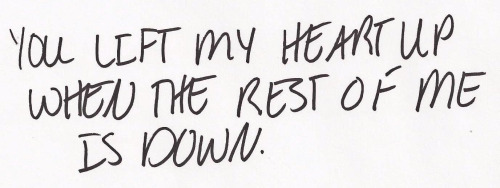 YOU LIFT MY HEART UP
WHEN THE REST OF ME
IS DOWN.